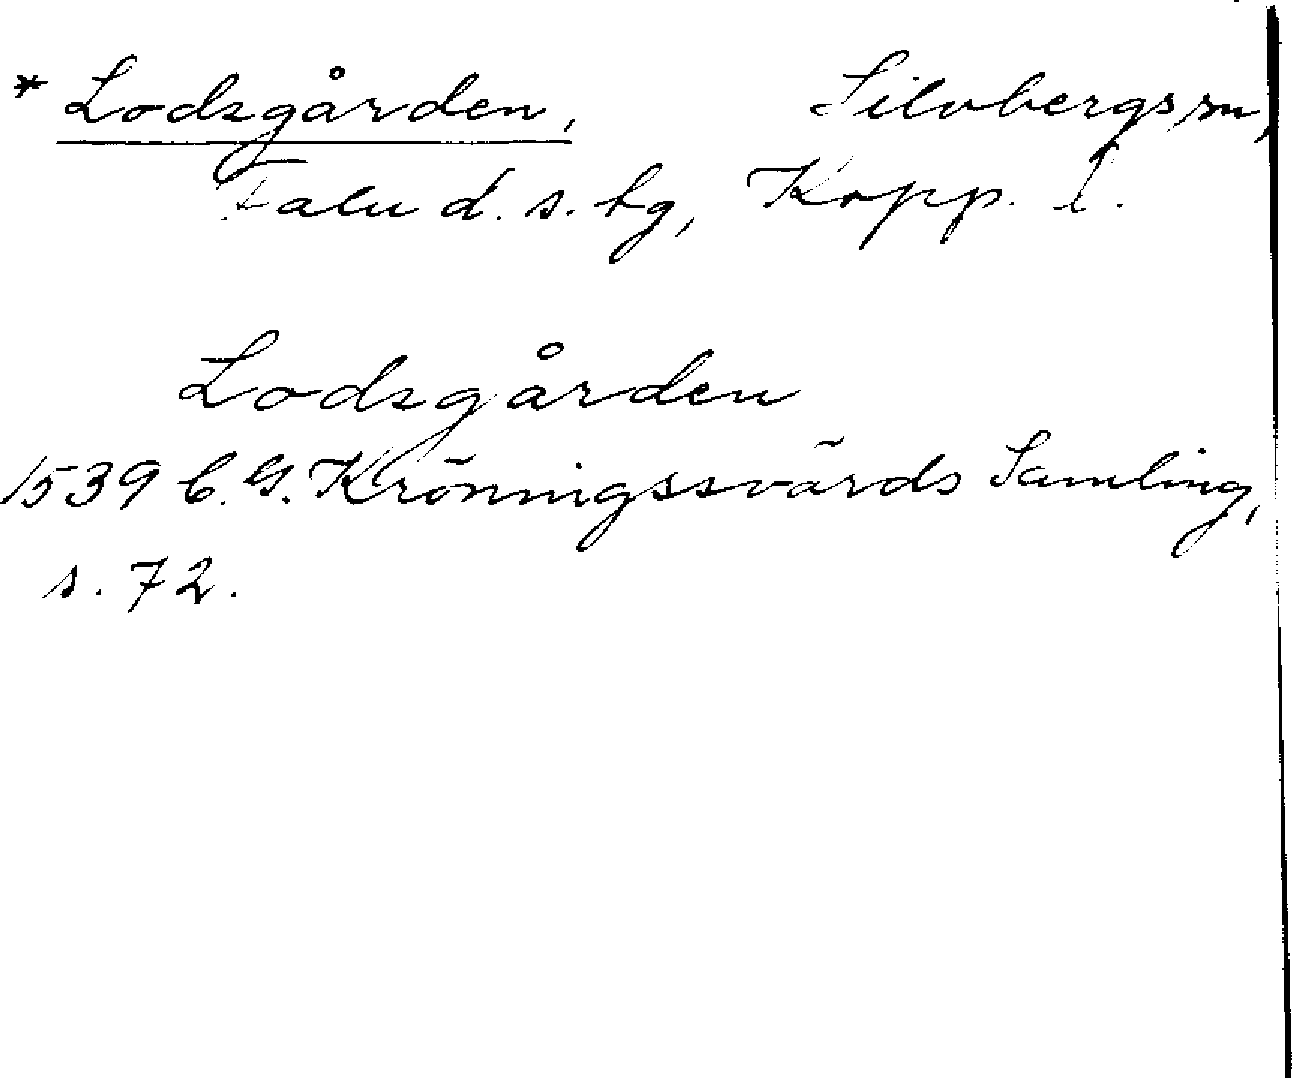 * Lodsgården, Silvbergs sn,
Falu d. s. tg, Kopp. l.
Lodsgården
1539 C. G. Kröningssvärds Samling,
s. 72.